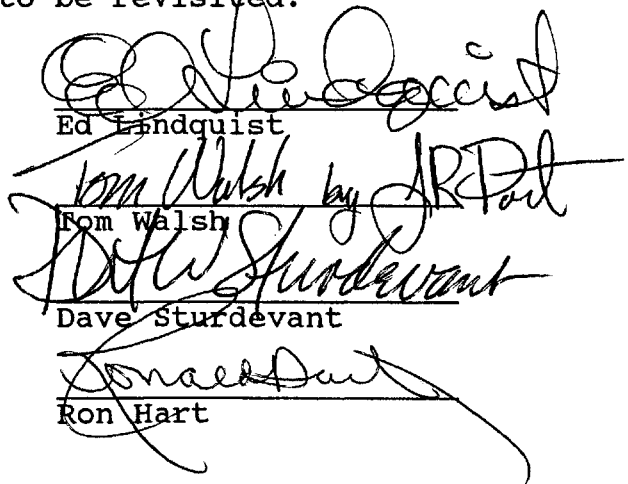 to be revisited.
Ed Lindquist
Ed Lindquist
Tom Walsh by
Tom Walsh
Sturdevant
Dave Sturdevant
Ronald Hart
Ron Hart